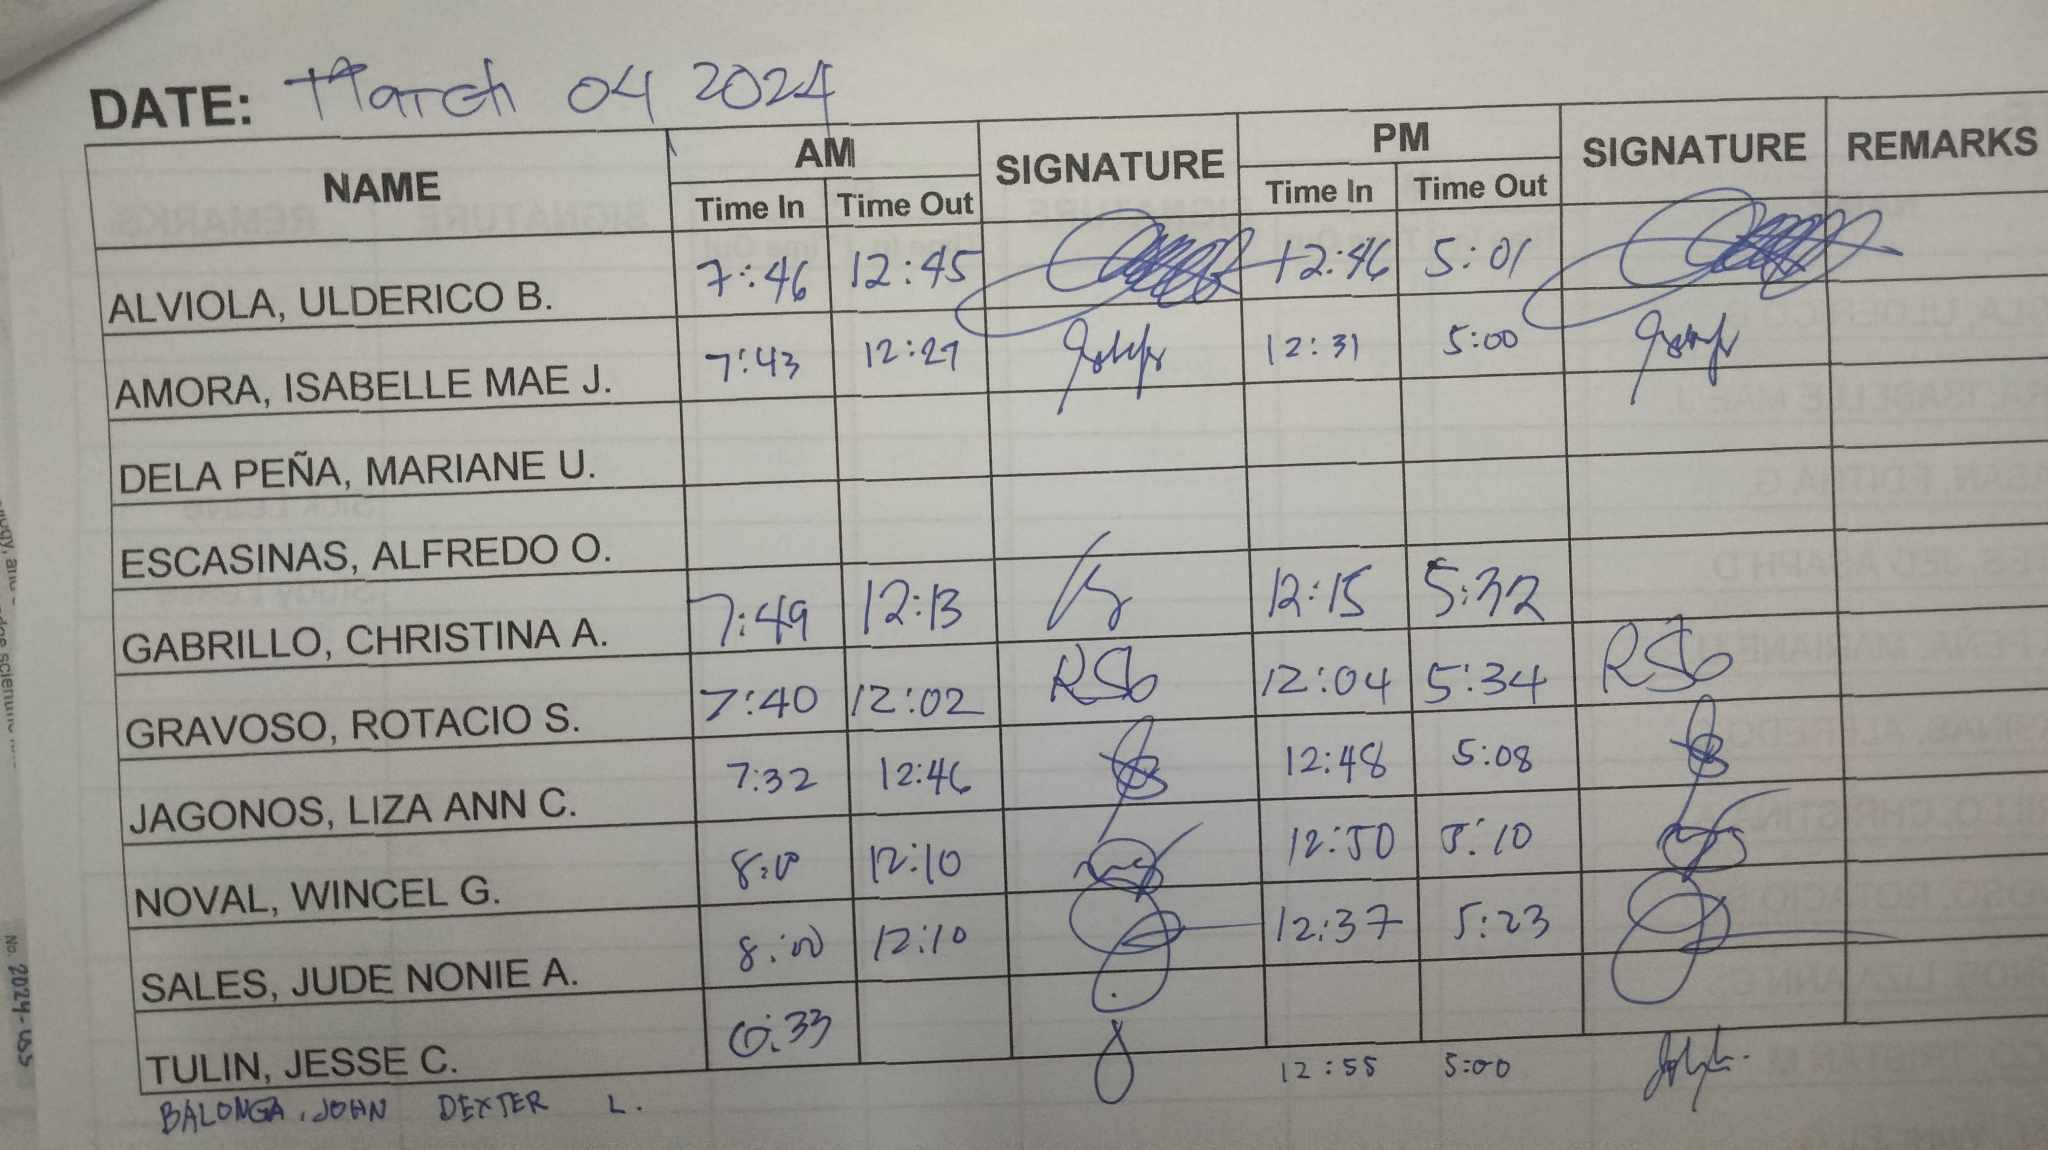 DATE: March 04 2024
NAME AM SIGNATURE PM SIGNATURE REMARKS
Time In Time Out Time In Time Out
ALVIOLA, ULDERICO B. 7:46 12:45 12:46 5:01
AMORA, ISABELLE MAE J. 7:43 12:27 12:31 5:00
DELA PEÑA, MARIANE U.
ESCASINAS, ALFREDO O.
GABRILLO, CHRISTINA A. 7:49 12:13 12:15 5:32
GRAVOSO, ROTACIO S. 7:40 12:02 RSG 12:04 5:34 RSG
JAGONOS, LIZA ANN C. 7:32 12:46 12:48 5:08
NOVAL, WINCEL G. 8:00 12:10 12:50 5:10
SALES, JUDE NONIE A. 8:00 12:10 12:37 5:23
TULIN, JESSE C. 6:33
BALONGA, JOHN DEXTER L. 12:55 5:00
No. 2024-